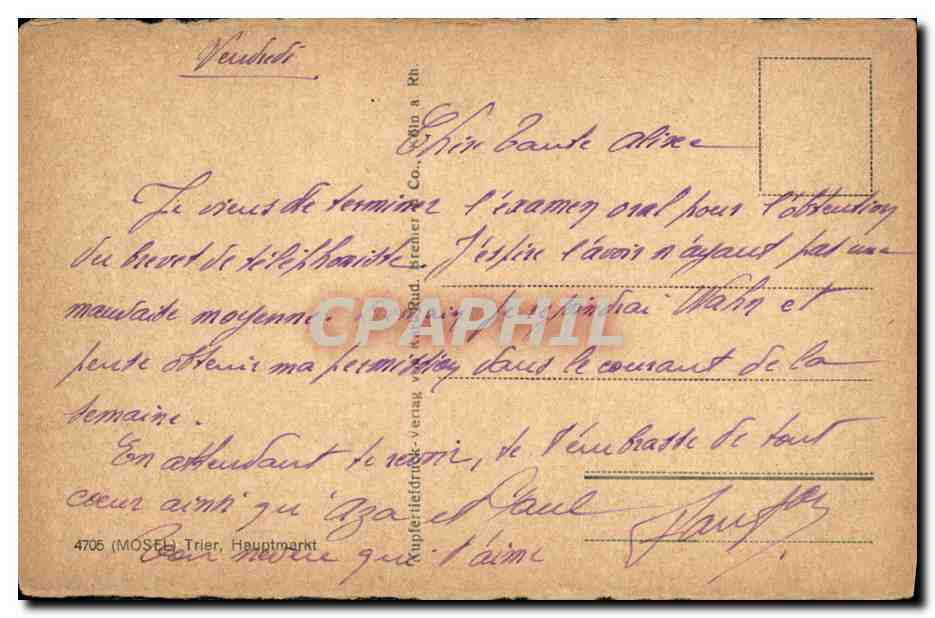 Vendredi
Chère Tante Alixe
Je viens de terminer l'examen oral pour l'obtention
du brevet de téléphoniste. J'espère l'avoir n'ayant pas une
mauvaise moyenne. je rejoindrai Wahn et
pense obtenir ma permission dans le courant de la
semaine.
En attendant te revoir, je t'embrasse de tout
coeur ainsi qu'Aza et Paul
Ton neveu qui t'aime
4705 (MOSEL) Trier, Hauptmarkt
Kupfertiefdruck-Verlag v. Rud. Bremer & Co., Köln a Rh.
CPAPHIL